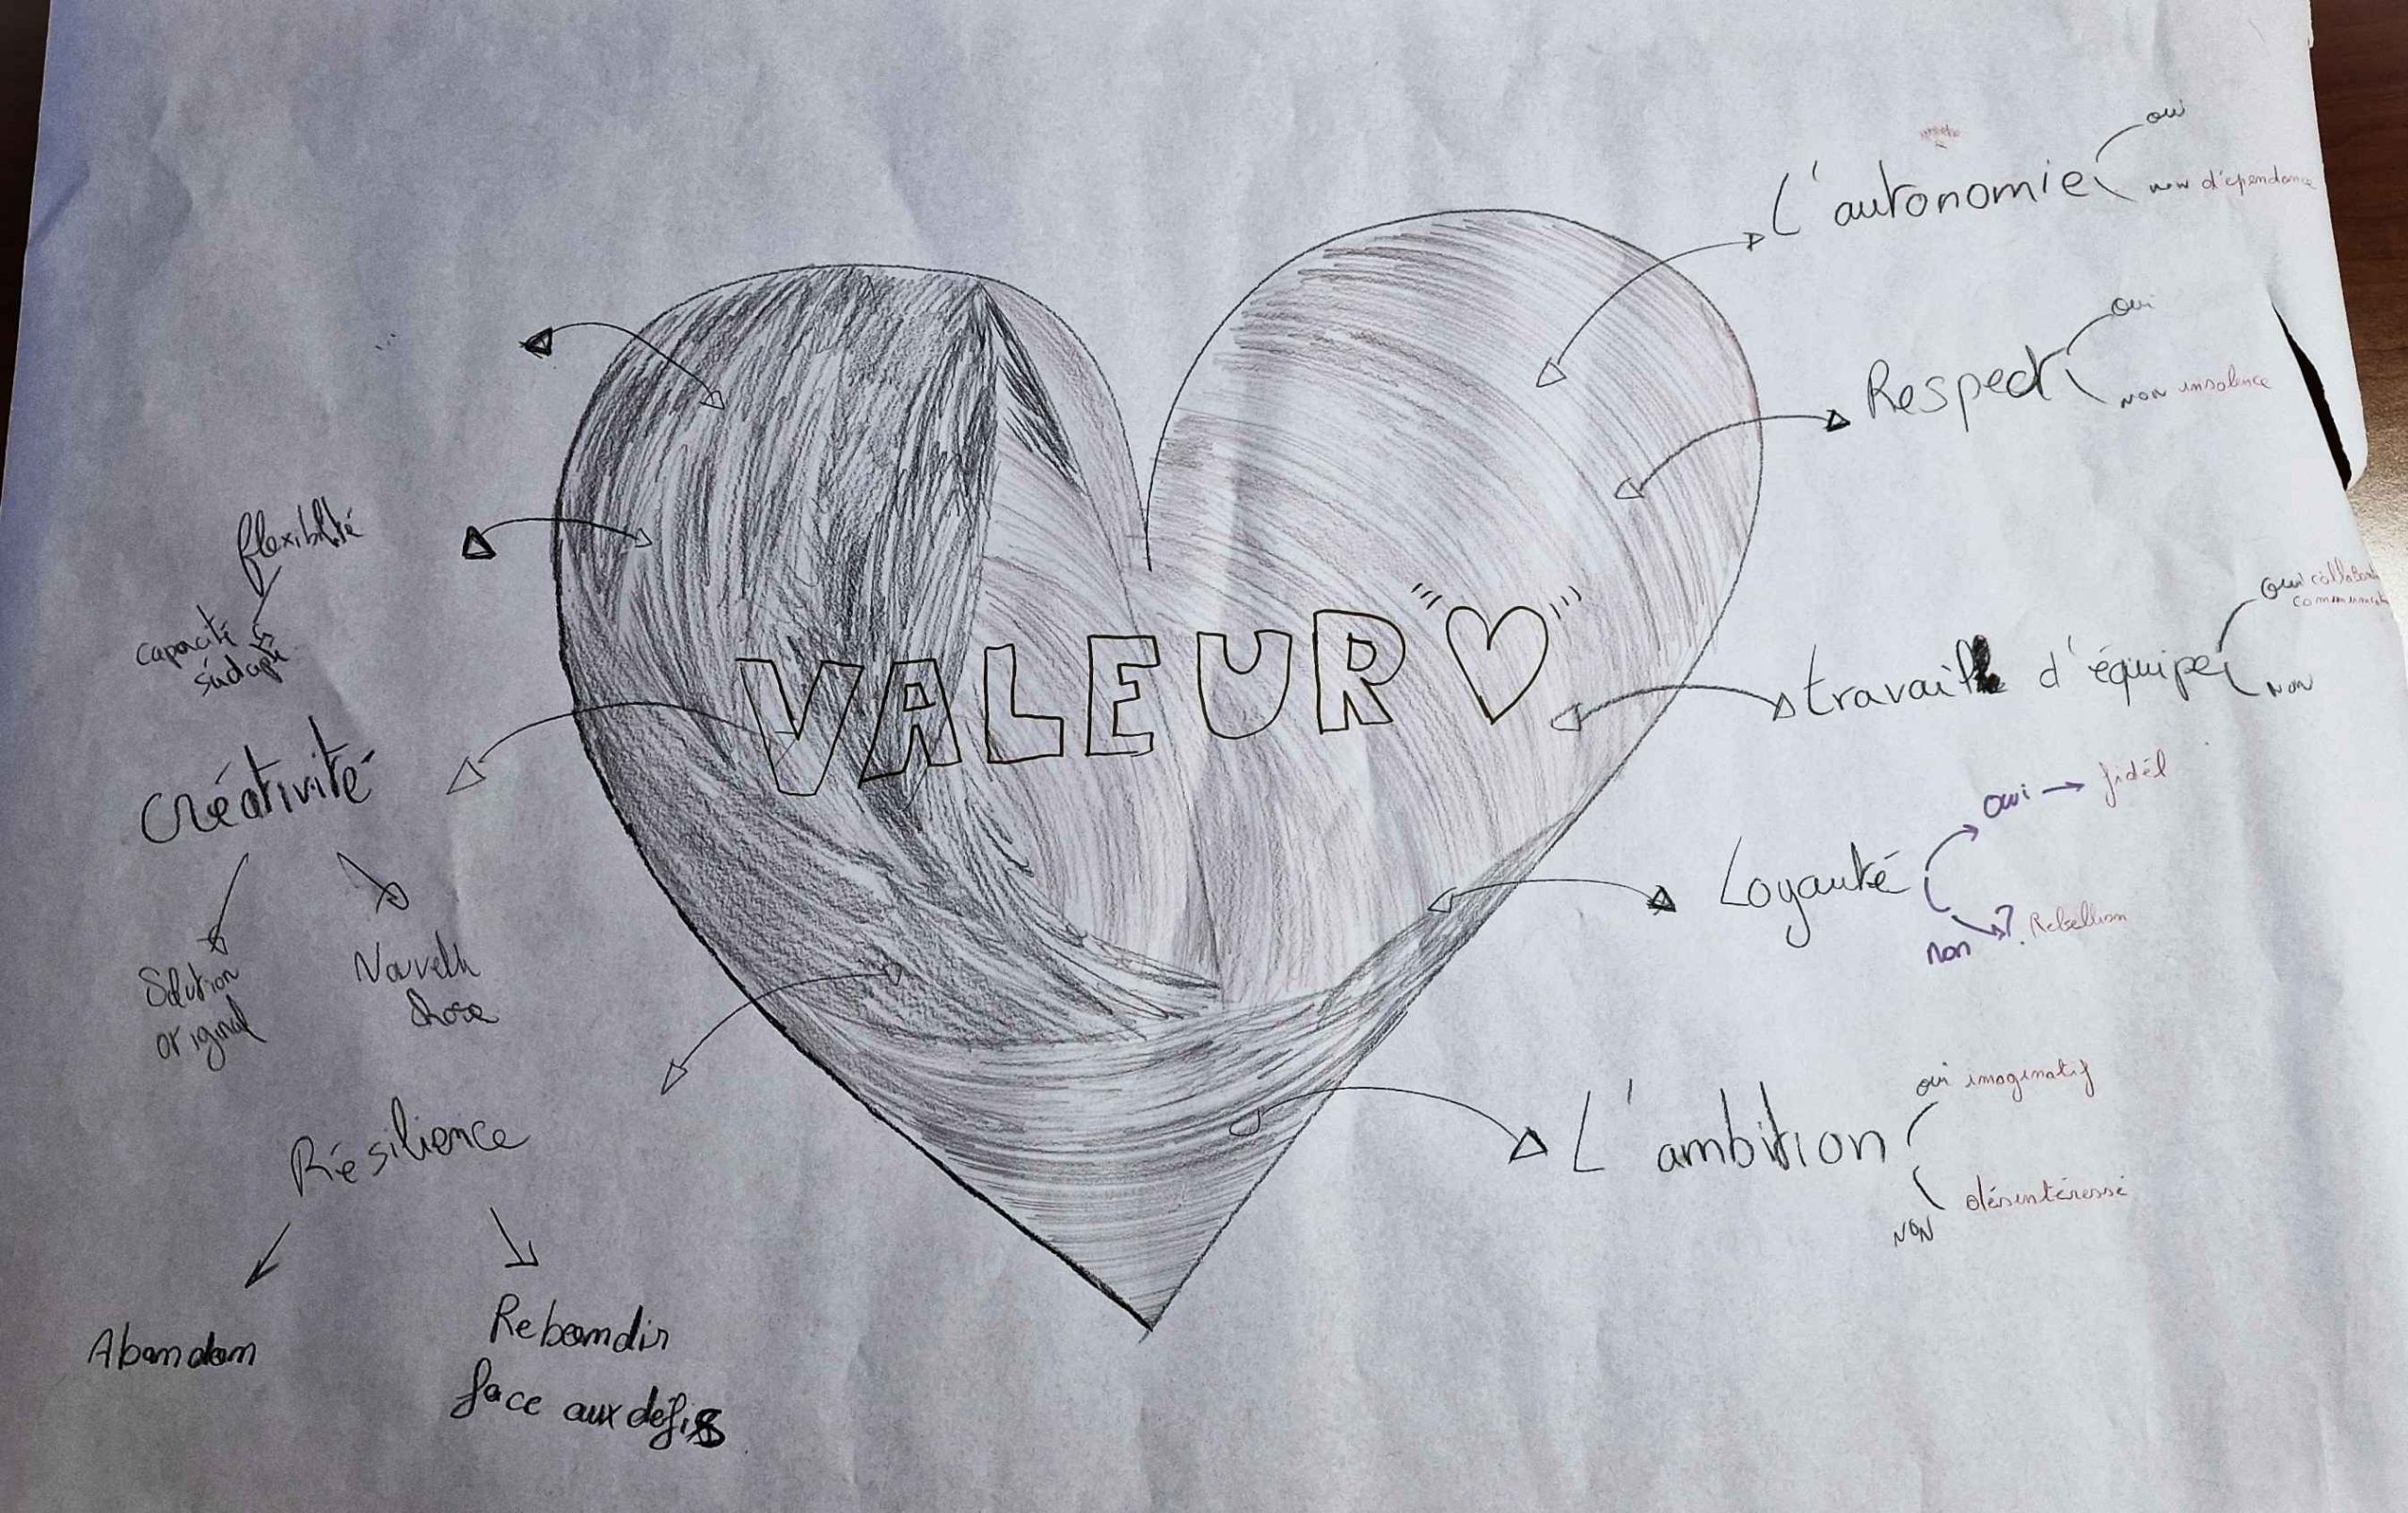 VALEUR
L'autonomie
oui
non d'ependance
Respect
oui
non insolence
travail d'équipe
oui
non
Loyauté
oui → fidél
non → ? Rebellion
L'ambition
oui imaginatif
NON désintéressé
flexibilité
capacité
s'adapt
Créativité
Solution
original
Nouvelle
chose
Résilience
Abandon
Rebondir
face aux défis